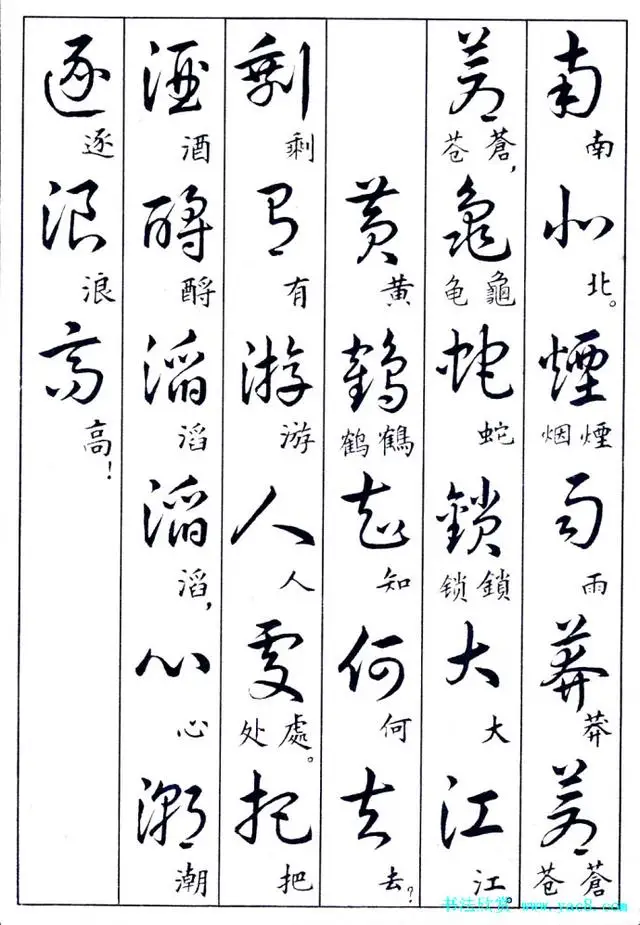 南北煙雨莽蒼
南北。煙烟雨莽蒼苍
蒼龜蛇鎖大江
蒼苍,龜龟蛇鎖锁大江。
黄鶴知何去
黄鶴鹤知何去?
剩有游人處把
剩有游人處处。把
酒酹滔滔心潮
酒酹滔滔,心潮
逐浪高
逐浪高!
书法欣赏 www.yac8.com